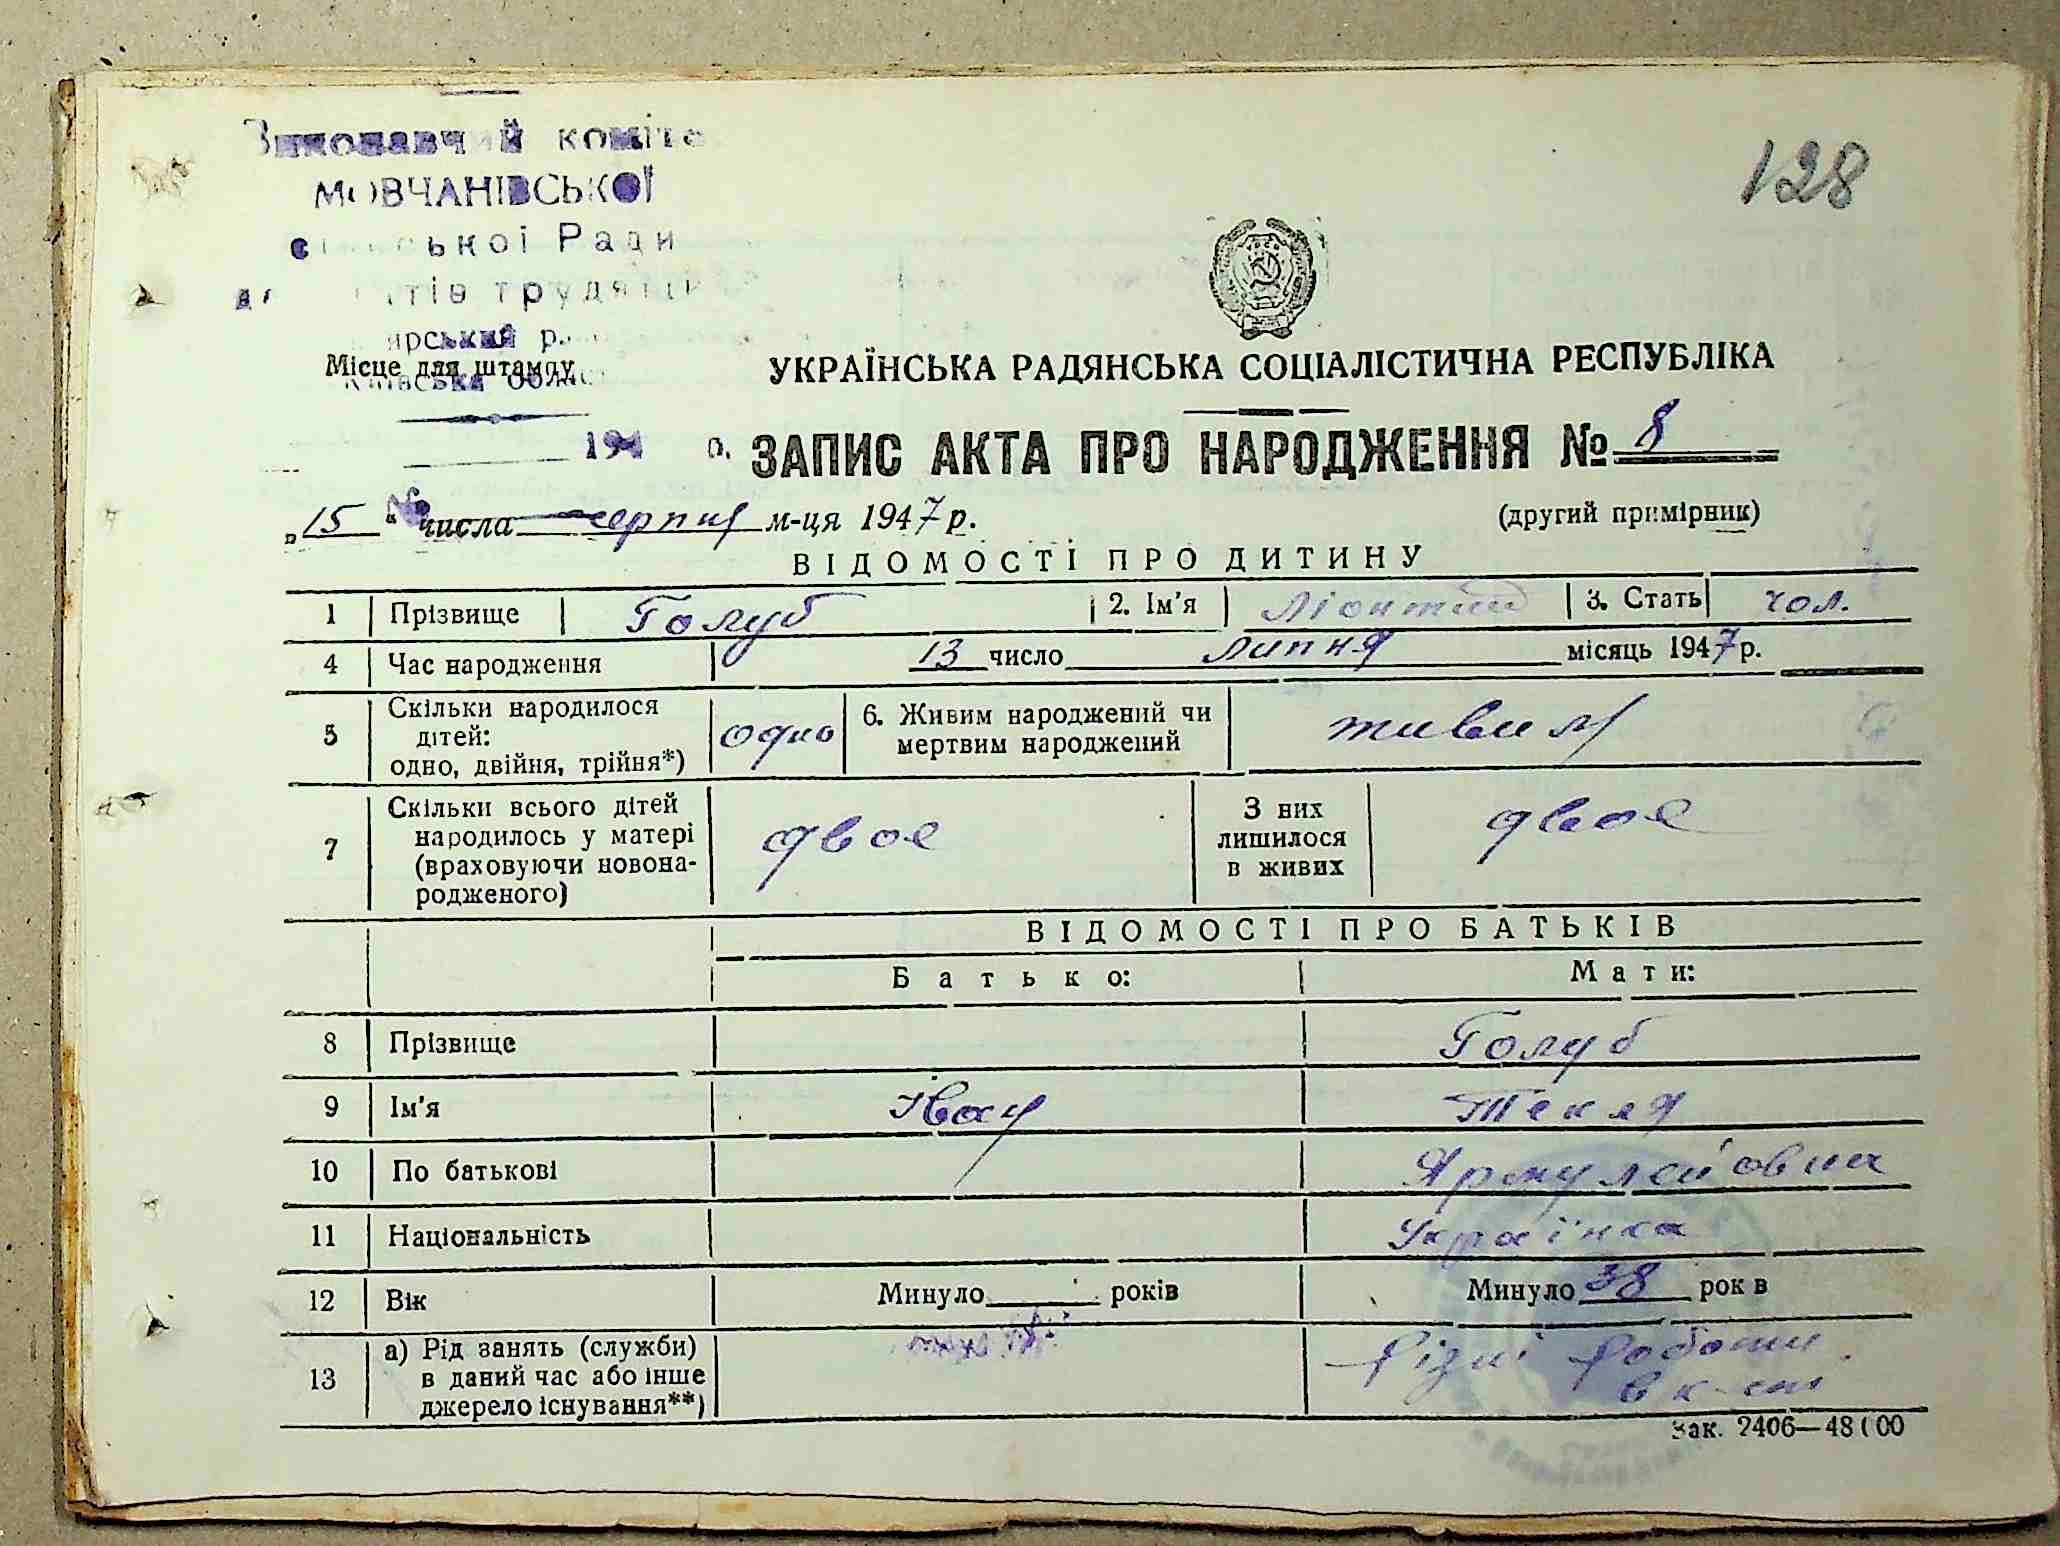 128
Виконавчий коміте
МОВЧАНІВСЬКОЇ
сільської Ради
трудящи
ярський р.
Місце для штампу
Київська област
194 р.
УКРАЇНСЬКА РАДЯНСЬКА СОЦІАЛІСТИЧНА РЕСПУБЛІКА
ЗАПИС АКТА ПРО НАРОДЖЕННЯ № 8
„ 15 " числа серпня м-ця 1947 р.
(другий примірник)
ВІДОМОСТІ ПРО ДИТИНУ
1 Прізвище Голуб 2. Ім'я Ліонтий 3. Стать чол.
4 Час народження 13 число липня місяць 1947 р.
5 Скільки народилося дітей: одно, двійня, трійня*) одно 6. Живим народжений чи мертвим народжений живим
7 Скільки всього дітей народилось у матері (враховуючи новонародженого) двоє З них лишилося в живих двоє
ВІДОМОСТІ ПРО БАТЬКІВ
Батько: Мати:
8 Прізвище Голуб
9 Ім'я Іван Текля
10 По батькові
11 Національність Українка
12 Вік Минуло років Минуло 38 рок в
13 а) Рід занять (служби) в даний час або інше джерело існування**) різні роботи в к-спі
Зак. 2406—48 00